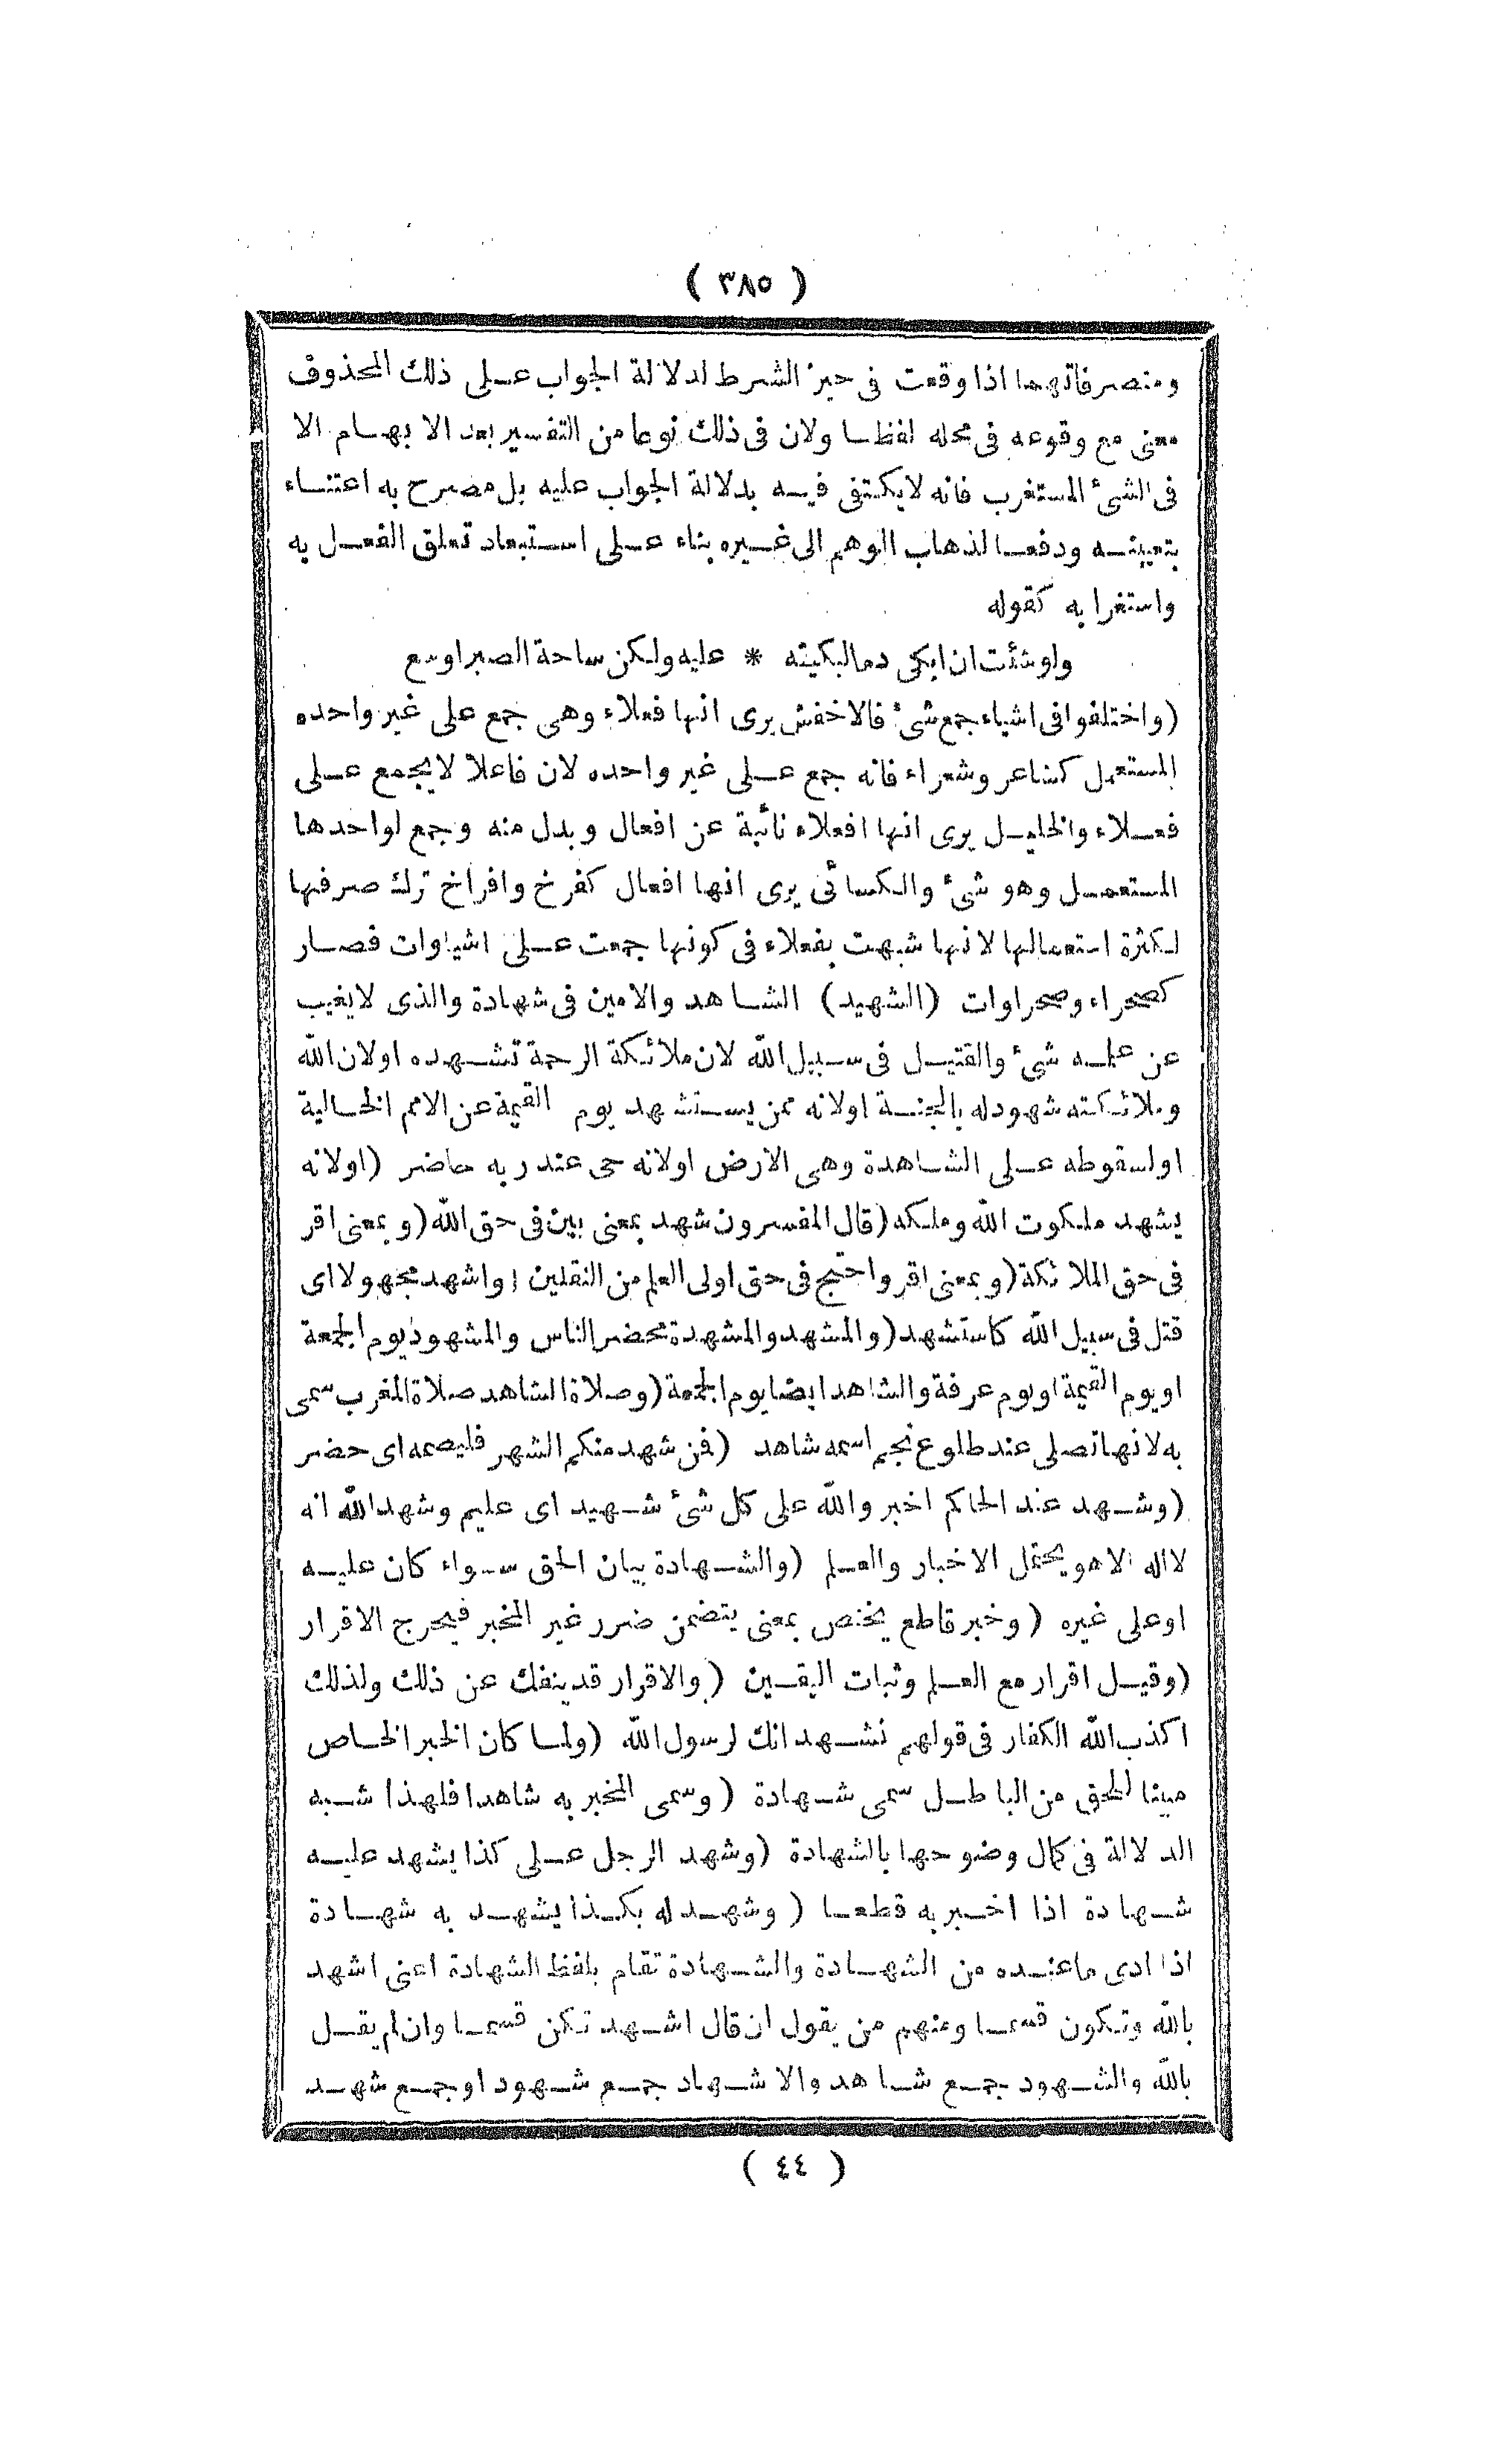 ( ٣٨٥ )
ومتصرفاتهما اذا وقعت فى حيز الشرط لدلالة الجواب على ذلك المحذوف
معنى مع وقوعه فى محله لفظا ولان فى ذلك نوعا من التفسير بعد الابهام الا
فى الشئ المستغرب فانه لايكتفى فيه بدلالة الجواب عليه بل مصرح به اعتناء
بتعيينه ودفعا لذهاب الوهم الى غيره بناء على استبعاد تعلق الفعل به
واستغرابه كقوله
ولو شئت ان ابكى دما لبكيته * عليه ولكن ساحة الصبر اوسع
(واختلفوا فى اشياء جمع شئ فالاخفش يرى انها فعلاء وهى جمع على غير واحده
المستعمل كشاعر وشعراء فانه جمع على غير واحده لان فاعلا لايجمع على
فعلاء والخليل يرى انها افعلاء نائبة عن افعال وبدل منه وجمع لواحدها
المستعمل وهو شئ والكسائى يرى انها افعال كفرخ وافراخ ترك صرفها
لكثرة استعمالها لانها شبهت بفعلاء فى كونها جمعت على اشياوات فصار
كصحراء وصحراوات (الشهيد) الشاهد والامين فى شهادة والذى لايغيب
عن علمه شئ والقتيل فى سبيل الله لان ملائكة الرحمة تشهده اولان الله
وملائكته شهود له بالجنة اولانه ممن يستشهد يوم القيمة عن الامم الخالية
اولسقوطه على الشاهدة وهى الارض اولانه حى عند ربه حاضر (اولانه
يشهد ملكوت الله وملكه (قال المفسرون شهد بمعنى بين فى حق الله (وبمعنى اقر
فى حق الملائكة (وبمعنى اقر واحتج فى حق اولى العلم من الثقلين (واشهد مجهولا اى
قتل فى سبيل الله كاستشهد (والمشهد والمشهدة محضر الناس والمشهود يوم الجمعة
او يوم القيمة او يوم عرفة والشاهد ايضا يوم الجمعة (وصلاة الشاهد صلاة المغرب سمى
به لانها تصلى عند طلوع نجم اسمه شاهد (فمن شهد منكم الشهر فليصمه اى حضر
(وشهد عند الحاكم اخبر والله على كل شئ شهيد اى عليم وشهد الله انه
لااله الاهو يحتمل الاخبار والعلم (والشهادة بيان الحق سواء كان عليه
اوعلى غيره (وخبر قاطع يختص بمعنى يتضمن ضرر غير المخبر فيخرج الاقرار
(وقيل اقرار مع العلم وثبات اليقين (والاقرار قد ينفك عن ذلك ولذلك
اكذب الله الكفار فى قولهم نشهد انك لرسول الله (ولما كان الخبر الخاص
مبينا للحق من الباطل سمى شهادة (وسمى المخبر به شاهدا فلهذا شبه
الدلالة فى كمال وضوحها بالشهادة (وشهد الرجل على كذا يشهد عليه
شهادة اذا اخبر به قطعا (وشهد له بكذا يشهد به شهادة
اذا ادى ماعنده من الشهادة والشهادة تقام بلفظ الشهادة اعنى اشهد
بالله وتكون قسما ومنهم من يقول ان قال اشهد تكن قسما وان لم يقل
بالله والشهود جمع شاهد والاشهاد جمع شهود اوجمع شهد
( ٤٤ )